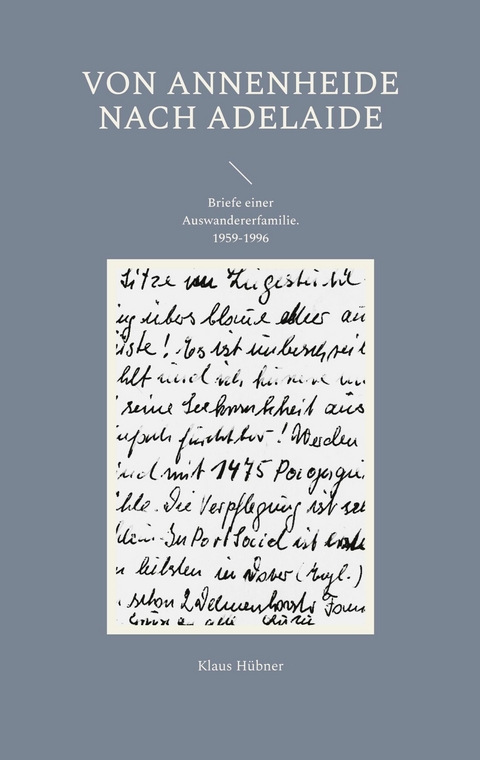 VON ANNENHEIDE
NACH ADELAIDE
Briefe einer
Auswandererfamilie.
1959-1996
Sitze im
ing übers blaue Meer au
üste! Es ist unbeschreib
hlt und ich
seine Seekrankheit aus
infach furchtbar! Werden
ind mit 1475 Passagie
hle. Die Verpflegung ist
In Port Said ist
liebsten in Dover (Engl.)
schon 2 Delmenhorster Fam
Klaus Hübner